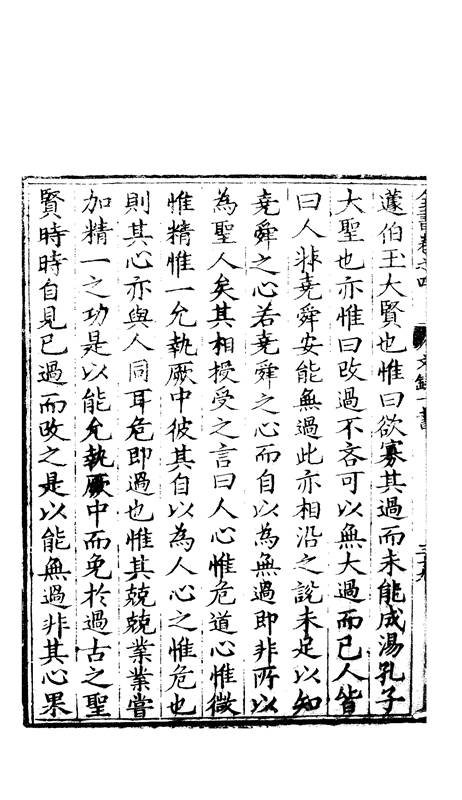 蘧伯玉大賢也惟曰欲寡其過而未能成湯孔子
大聖也亦惟曰改過不吝可以無大過而已人皆
曰人非堯舜安能無過此亦相沿之說未足以知
堯舜之心若堯舜之心而自以為無過即非所以
為聖人矣其相授受之言曰人心惟危道心惟微
惟精惟一允執厥中彼其自以為人心之惟危也
則其心亦與人同耳危即過也惟其兢兢業業嘗
加精一之功是以能允執厥中而免於過古之聖
賢時時自見己過而改之是以能無過非其心果